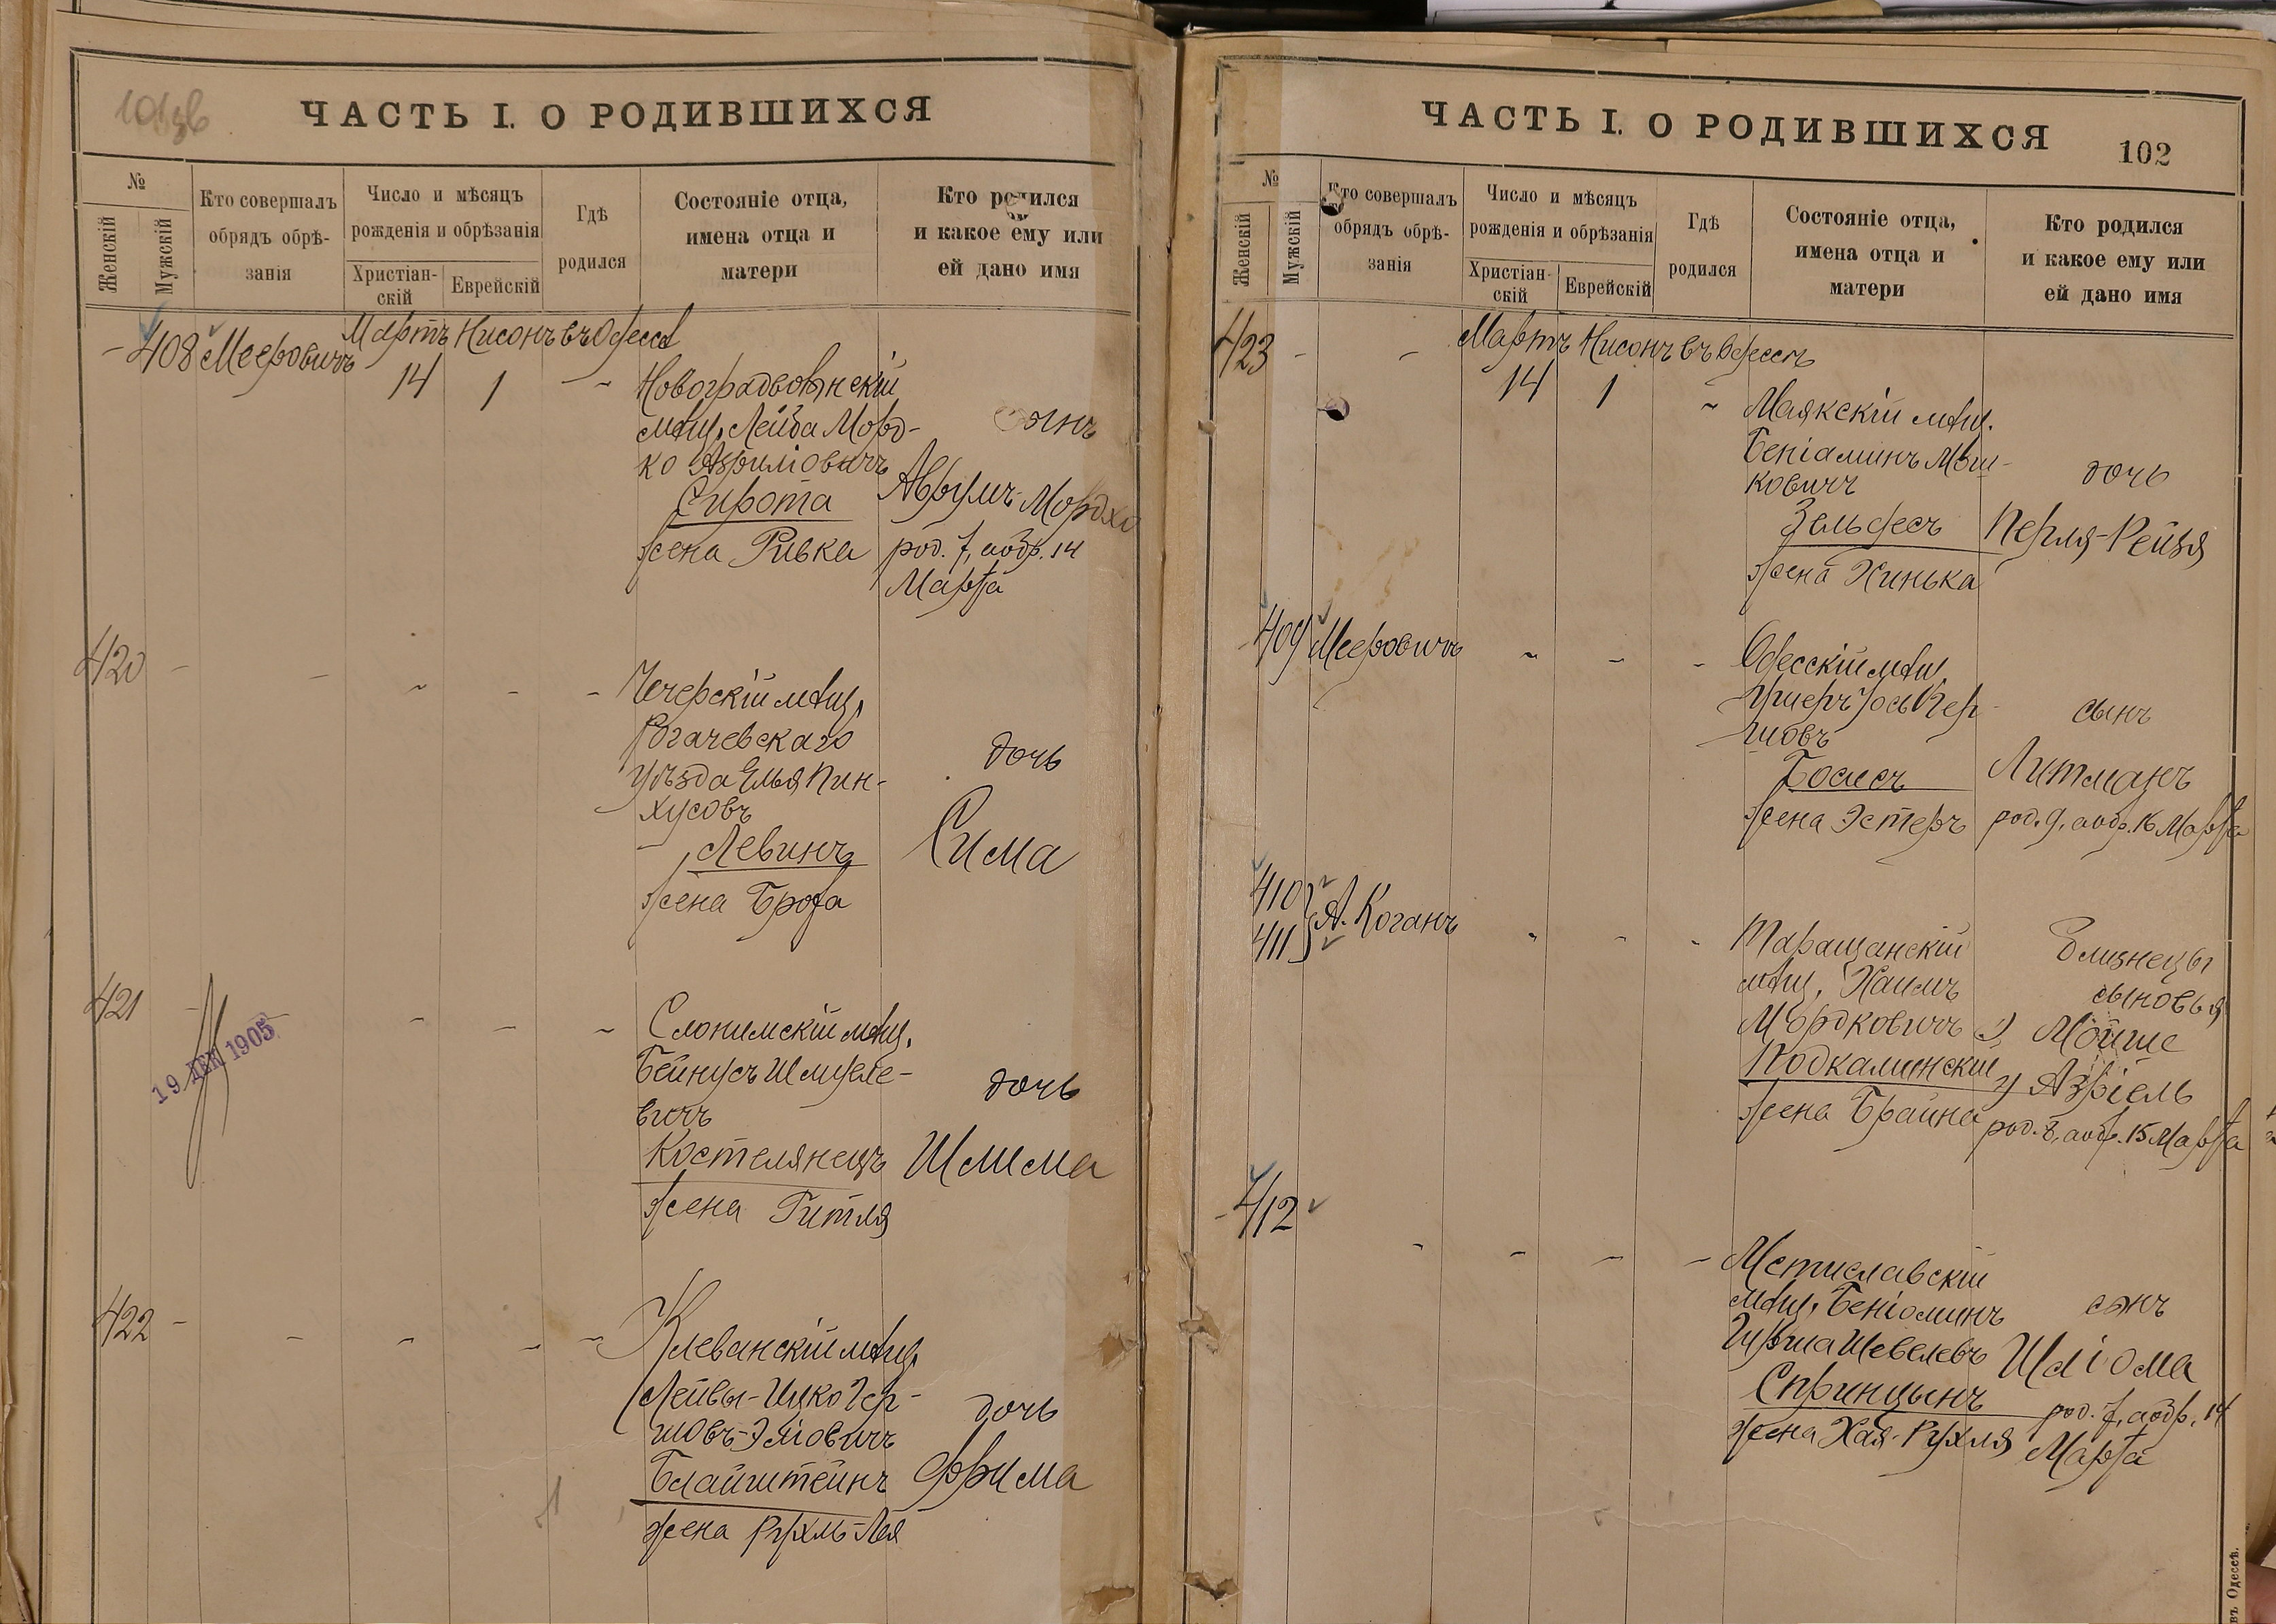 101 зв
ЧАСТЬ I. О РОДИВШИХСЯ
№
Женскій
Мужскій
Кто совершалъ
обрядъ обрѣ-
занія
Число и мѣсяцъ
рожденія и обрѣзанія
Христіан-
скій
Еврейскій
Гдѣ
родился
Состояніе отца,
имена отца и
матери
Кто родился
и какое ему или
ей дано имя
- 408 Мееровичъ
Мартъ Нисонъ въ Одессѣ
14 1 - Новоградволынскій
мѣщ. Лейба Морд-
ко
Сирота
жена Ривка
сынъ
Аврумъ-Мордхо
род. 7, аобр. 14
Марта
420 - - - - - Чечерскій мѣщ.
Рогачевскаго
уѣзда Элья Пин-
хусовъ
Левинъ
жена Броха
дочь
Сима
421 - - - - - Слонимскій мѣщ.
Бейнусъ Шмуеле-
вичъ
Костелянецъ
жена Гитля
дочь
Шлима
19 ДЕК 1905
422 - - - - - Клеванскій мѣщ.
Лейвы-Ицко Гер-
шовъ-Эліовичъ
Блайштейнъ
жена Рухль-Лея
дочь
Фрима
ЧАСТЬ I. О РОДИВШИХСЯ
102
№
Женскій
Мужскій
Кто совершалъ
обрядъ обрѣ-
занія
Число и мѣсяцъ
рожденія и обрѣзанія
Христіан-
скій
Еврейскій
Гдѣ
родился
Состояніе отца,
имена отца и
матери
Кто родился
и какое ему или
ей дано имя
423 - -
Мартъ Нисонъ въ Одессѣ
14 1 - Маякскій мѣщ.
Беніаминъ Мош-
ковичъ
Зельфесъ
жена Хинька
дочь
Перля-Рейзя
- 409 Мееровичъ - - - Одесскій мѣщ.
Іось Гер-
шовъ
жена Эстеръ
сынъ
Литманъ
род. 9, аобр. 16 Марта
410
411 } А. Коганъ - - - Таращанскій
мѣщ. Хаимъ
Мордковичъ
Подкаминскій
жена Брайна
близнецы
сыновья
1) Мойше
2) Азріель
род. 8, аобр. 15 Марта
- 412 - - - - Мстиславскій
мѣщ. Беніоминъ
Гирша Шевелевъ
Спринцынъ
жена Хая-Рухля
сынъ
Шліома
род. 7, аобр. 14
Марта
въ Одессѣ.